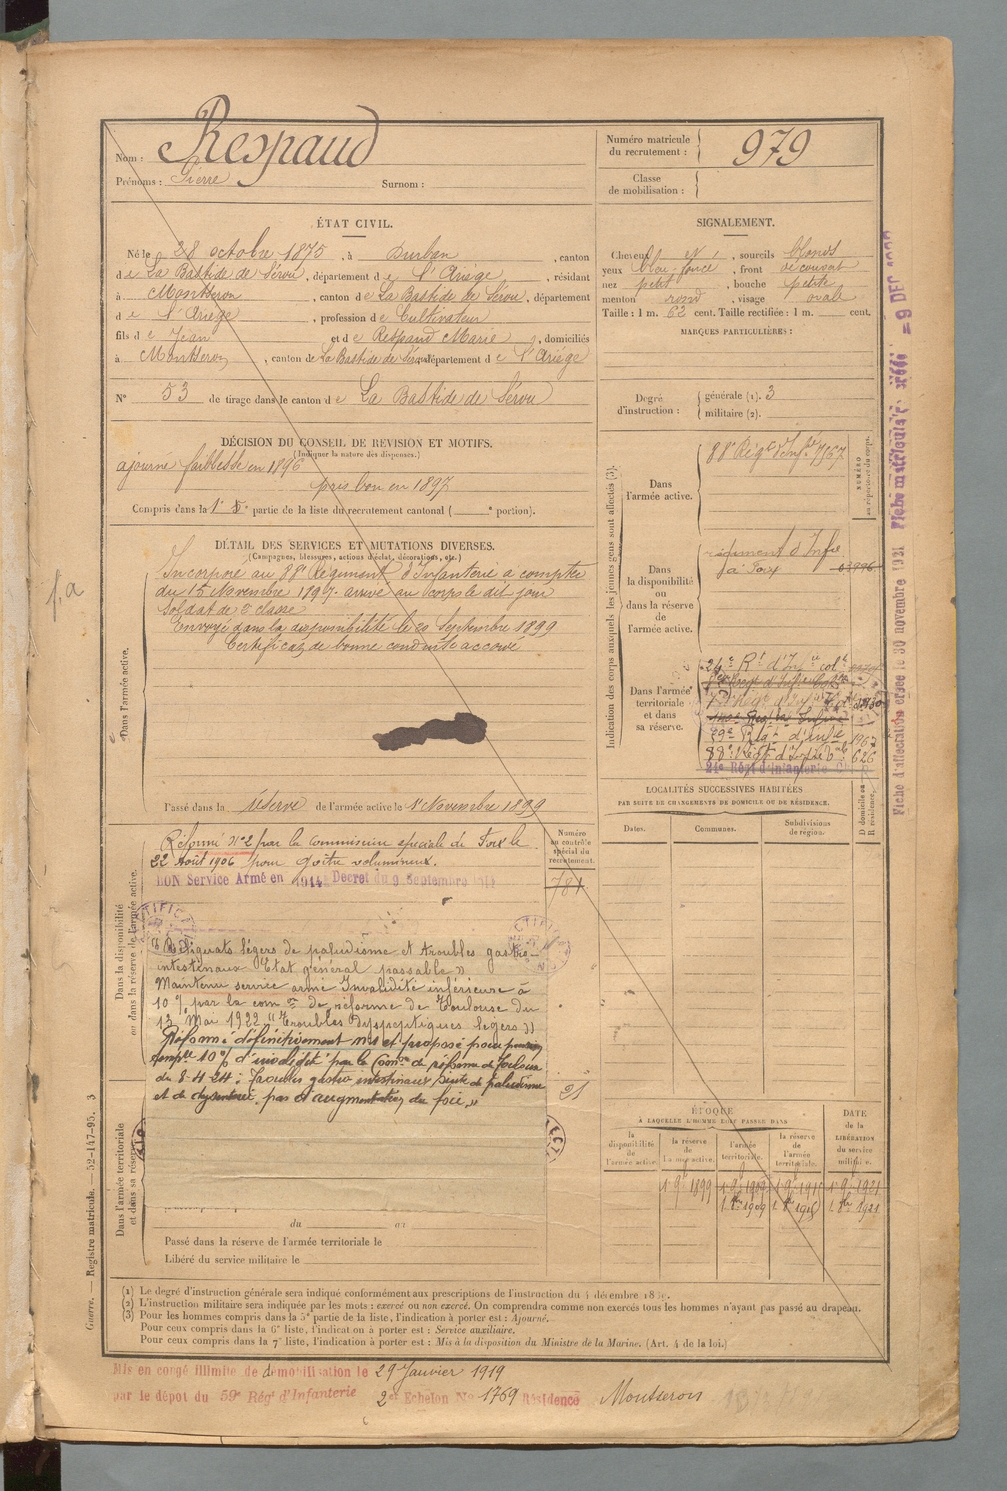 Nom : Respaud
Prénoms : Pierre Surnom :
Numéro matricule du recrutement : 979
Classe de mobilisation :
ÉTAT CIVIL.
Né le 28 octobre 1875, à Durban, canton
de La Bastide de Sérou, département de l'Ariége, résidant
à Montseron, canton de La Bastide de Sérou, département
de l'Ariége, profession de Cultivateur
fils de Jean et de Respaud Marie, domiciliés
à Montseron, canton de La Bastide de Sérou département de l'Ariége
N° 53 de tirage dans le canton de La Bastide de Sérou
SIGNALEMENT.
Cheveux, sourcils blonds
yeux bleu foncé, front découvert
nez petit, bouche petite
menton rond, visage ovale
Taille : 1 m. 62 cent. Taille rectifiée : 1 m. cent.
MARQUES PARTICULIÈRES :
Degré d'instruction : générale (1). 3
militaire (2).
DÉCISION DU CONSEIL DE REVISION ET MOTIFS.
(Indiquer la nature des dispenses.)
ajourné faiblesse en 1896
pris bon en 1897
Compris dans la 1e partie de la liste du recrutement cantonal ( e portion).
DÉTAIL DES SERVICES ET MUTATIONS DIVERSES.
(Campagnes, blessures, actions d'éclat, décorations, etc.)
Dans l'armée active.
Incorporé au 88e Régiment d'Infanterie à compter
du 15 Novembre 1897 arrivé au corps le dit jour
Soldat de 2e classe
Envoyé dans la disponibilité le 20 Septembre 1899
Certificat de bonne conduite accordé
Passé dans la réserve de l'armée active le 1 Novembre 1899
f.a
Indication des corps auxquels les jeunes gens sont affectés (3).
Dans l'armée active.
88e Régt d'Infie 7567
NUMÉRO au répertoire du corps.
Dans la disponibilité ou dans la réserve de l'armée active.
régiment d'Infie
à Foix
Dans l'armée territoriale et dans sa réserve.
24e Rt d'Infie colle
1967
88e Regt d'Infie 626
21e Régt d'Infanterie
Dans la disponibilité ou dans la réserve de l'armée active.
Numéro au contrôle spécial du recrutement.
781
Réformé N°2 par la Commission spéciale de Foix le
22 Août 1906 pour goître volumineux.
BON Service Armé en 1914 Décret du 9 Septembre 1914
"Reliquats légers de paludisme et troubles gastro-
intestinaux Etat général passable"
Maintenu service armé Invalidité inférieure à
10 % par la com on de réforme de Toulouse du
13 Mai 1922 "Troubles dyspeptiques légers"
Réformé définitivement n°2 et proposé pour pension
temp re 10% d'invalidité par la Com on de réforme de Toulouse
du 8-4-24 : Troubles gastro intestinaux suite de paludisme
et de dysenterie, pas d'augmentation du foie,"
21
LOCALITÉS SUCCESSIVES HABITÉES
PAR SUITE DE CHANGEMENTS DE DOMICILE OU DE RÉSIDENCE.
Dates.
Communes.
Subdivisions de région.
D domicile ou R résidence.
ÉPOQUE
À LAQUELLE L'HOMME DOIT PASSER DANS
DATE DE LA LIBÉRATION du service militaire.
la disponibilité de l'armée active.
la réserve de l'armée active.
l'armée territoriale.
la réserve de l'armée territoriale.
1 9bre 1899
1. 8bre 1909
1. 8bre 1915
1. 8bre 1921
Dans l'armée territoriale et dans sa réserve.
du au
Passé dans la réserve de l'armée territoriale le
Libéré du service militaire le
Guerre. — Registre matricule. — 52-147-95. 3
(1) Le degré d'instruction générale sera indiqué conformément aux prescriptions de l'instruction du 4 décembre 1889.
(2) L'instruction militaire sera indiquée par les mots : exercé ou non exercé. On comprendra comme non exercés tous les hommes n'ayant pas passé au drapeau.
(3) Pour les hommes compris dans la 5e partie de la liste, l'indication à porter est : Ajourné.
Pour ceux compris dans la 6e liste, l'indication à porter est : Service auxiliaire.
Pour ceux compris dans la 7e liste, l'indication à porter est : Mis à la disposition du Ministre de la Marine. (Art. 4 de la loi.)
Mis en congé illimité de démobilisation le 29 Janvier 1919
par le dépot du 59e Rég' d'Infanterie 2e Echelon N° 1769 Résidence Montseron
Fiche d'affectation créée le 30 novembre 1921 Fiche matricule créée = 9 DEC.